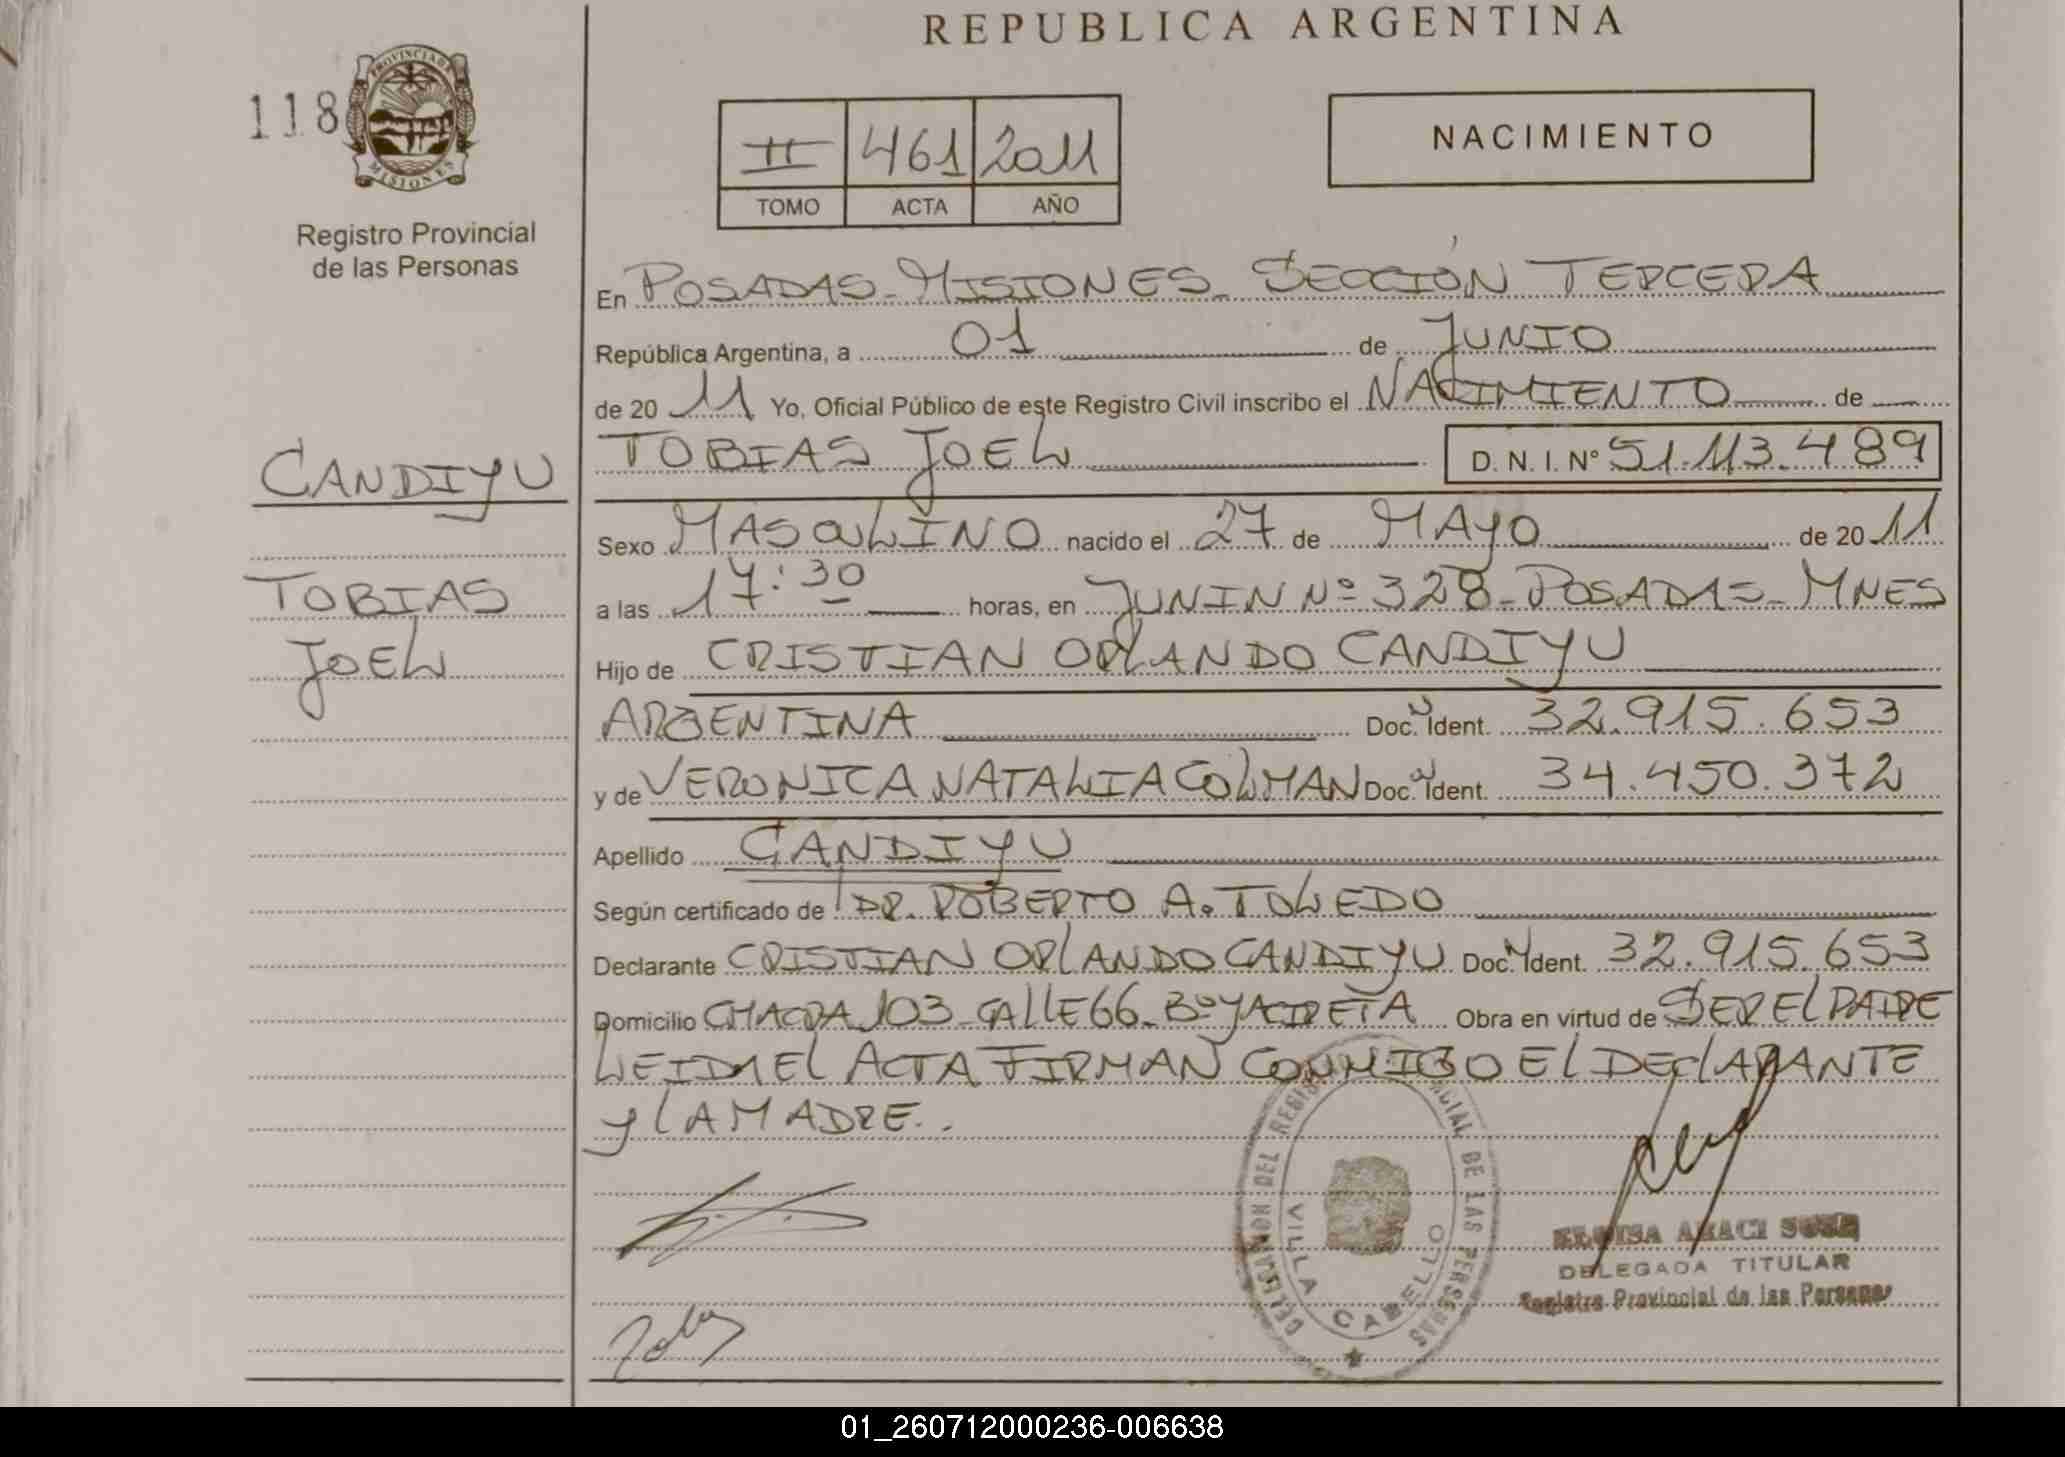 REPUBLICA ARGENTINA
118
PROVINCIA DE
MISIONES
Registro Provincial
de las Personas
II 461 2011
TOMO ACTA AÑO
NACIMIENTO
En POSADAS - MISIONES - SECCIÓN TERCERA
República Argentina, a 01 de JUNIO
de 20 11 Yo, Oficial Público de este Registro Civil inscribo el NACIMIENTO de
TOBIAS JOEL D. N. I. Nº 51.113.489
CANDIYU
TOBIAS
JOEL
Sexo MASCULINO nacido el 27 de MAYO de 20 11
a las 17:30 horas, en JUNIN Nº 328 - POSADAS - MNES
Hijo de CRISTIAN ORLANDO CANDIYU
ARGENTINA Doc. Ident. 32.915.653
y de VERONICA NATALIA COLMAN Doc. Ident. 34.450.372
Apellido CANDIYU
Según certificado de DR. ROBERTO A. TOLEDO
Declarante CRISTIAN ORLANDO CANDIYU Doc. Ident. 32.915.653
Domicilio CHACRA 103 - CALLE 66 - Bº YACIRETA Obra en virtud de SER EL PADRE
LEIDA EL ACTA FIRMAN CONMIGO EL DECLARANTE
y LA MADRE..
DELEGACION DEL REGISTRO PROVINCIAL DE LAS PERSONAS
VILLA CABELLO
DELEGADA TITULAR
Registro Provincial de las Personas
01_260712000236-006638